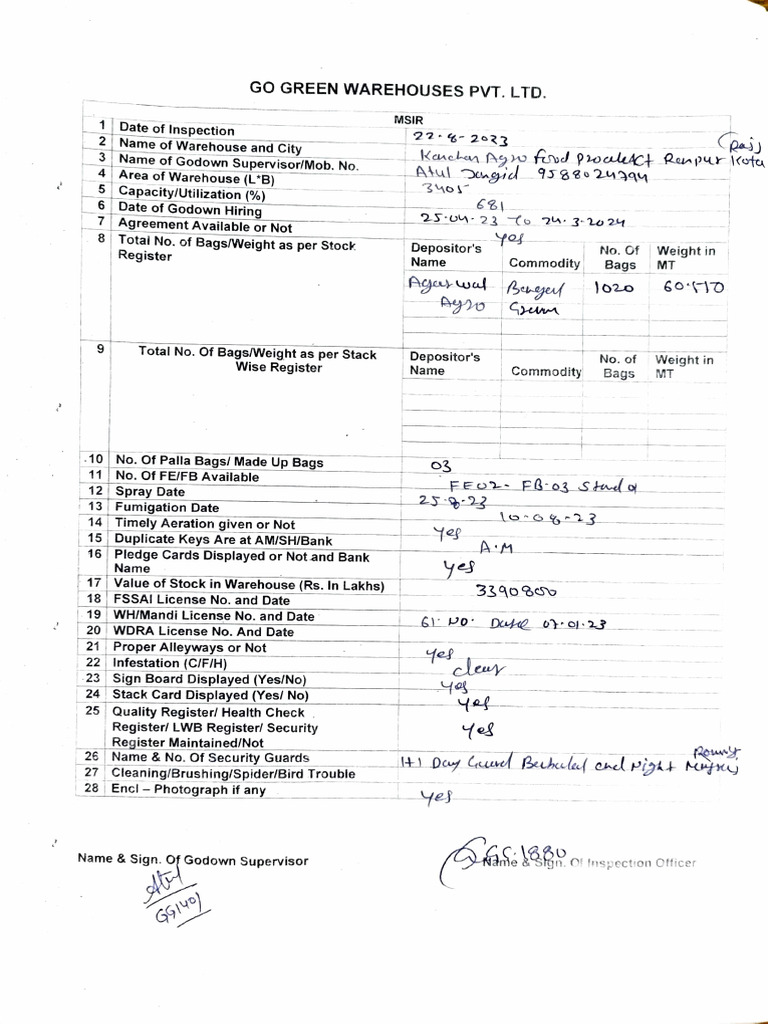 GO GREEN WAREHOUSES PVT. LTD.
MSIR
1 Date of Inspection 22-8-2023
2 Name of Warehouse and City Kanchan Agro food Ranpur Kota (Raj)
3 Name of Godown Supervisor/Mob. No. Atul Jangid 9588024794
4 Area of Warehouse (L*B) 3405
5 Capacity/Utilization (%) 681
6 Date of Godown Hiring 25-04-23 To 24-3-2024
7 Agreement Available or Not yes
8 Total No. of Bags/Weight as per Stock Register
Depositor's Name Commodity No. Of Bags Weight in MT
Agarwal Agro Bengal Gram 1020 60.510
9 Total No. Of Bags/Weight as per Stack Wise Register
Depositor's Name Commodity No. of Bags Weight in MT
10 No. Of Palla Bags/ Made Up Bags 03
11 No. Of FE/FB Available FE02- FB-03
12 Spray Date 25-8-23
13 Fumigation Date 10-08-23
14 Timely Aeration given or Not yes
15 Duplicate Keys Are at AM/SH/Bank A.M
16 Pledge Cards Displayed or Not and Bank Name yes
17 Value of Stock in Warehouse (Rs. In Lakhs) 3390800
18 FSSAI License No. and Date
19 WH/Mandi License No. and Date 61. NO. Date 07.01.23
20 WDRA License No. And Date
21 Proper Alleyways or Not yes
22 Infestation (C/F/H) clear
23 Sign Board Displayed (Yes/No) yes
24 Stack Card Displayed (Yes/ No) yes
25 Quality Register/ Health Check Register/ LWB Register/ Security Register Maintained/Not yes
26 Name & No. Of Security Guards 1+1 Day Guard and Night
27 Cleaning/Brushing/Spider/Bird Trouble
28 Encl – Photograph if any yes
Name & Sign. Of Godown Supervisor
Atul
GG1401
GG.1880
Name & Sign. Of Inspection Officer